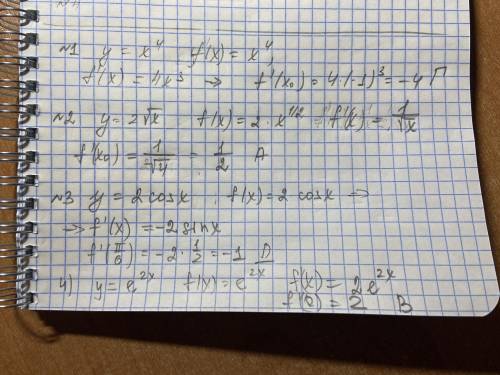 №1 y = x⁴ f'(x) = x⁴,
f'(x) = 4x³ → f'(x₀) = 4·(-1)³ = -4 Г
№2 y = 2√x f(x) = 2·x^1/2 f'(x) = 1/√x
f'(x₀) = 1/√4 = 1/2 А
№3 y = 2cosx, f(x) = 2cosx →
→ f'(x) = -2 sinx
f'(π/6) = -2·1/2 = -1 Д
4) y = e^2x f(x) = e^2x f'(x) = 2e^2x
f'(0) = 2 В